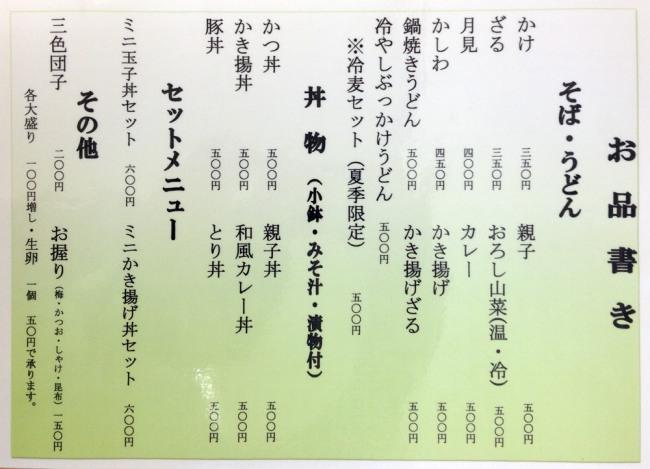 お品書き
そば・うどん
かけ 三五〇円 親子 五〇〇円
ざる 三五〇円 おろし山菜(温・冷) 五〇〇円
月見 四〇〇円 カレー 五〇〇円
かしわ 四五〇円 かき揚げ 五〇〇円
鍋焼きうどん 五〇〇円 かき揚げざる 五〇〇円
冷やしぶっかけうどん 五〇〇円
※冷麦セット(夏季限定) 五〇〇円
丼物(小鉢・みそ汁・漬物付)
かつ丼 五〇〇円 親子丼 五〇〇円
かき揚丼 五〇〇円 和風カレー丼 五〇〇円
豚丼 五〇〇円 とり丼 五〇〇円
セットメニュー
ミニ玉子丼セット 六〇〇円 ミニかき揚げ丼セット 六〇〇円
その他
三色団子 二〇〇円 お握り(梅・かつお・しゃけ・昆布)一五〇円
各大盛り 一〇〇円増し・生卵 一個 五〇円で承ります。